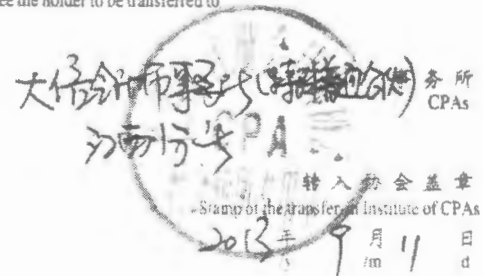 ee the holder to be transferred to
大信会计师事务所(特殊普通合伙) 务所
CPAs
江西分所
CPA
转入协会盖章
Stamp of the transfer-in Institute of CPAs
2013年 9月 11日
/y /m d